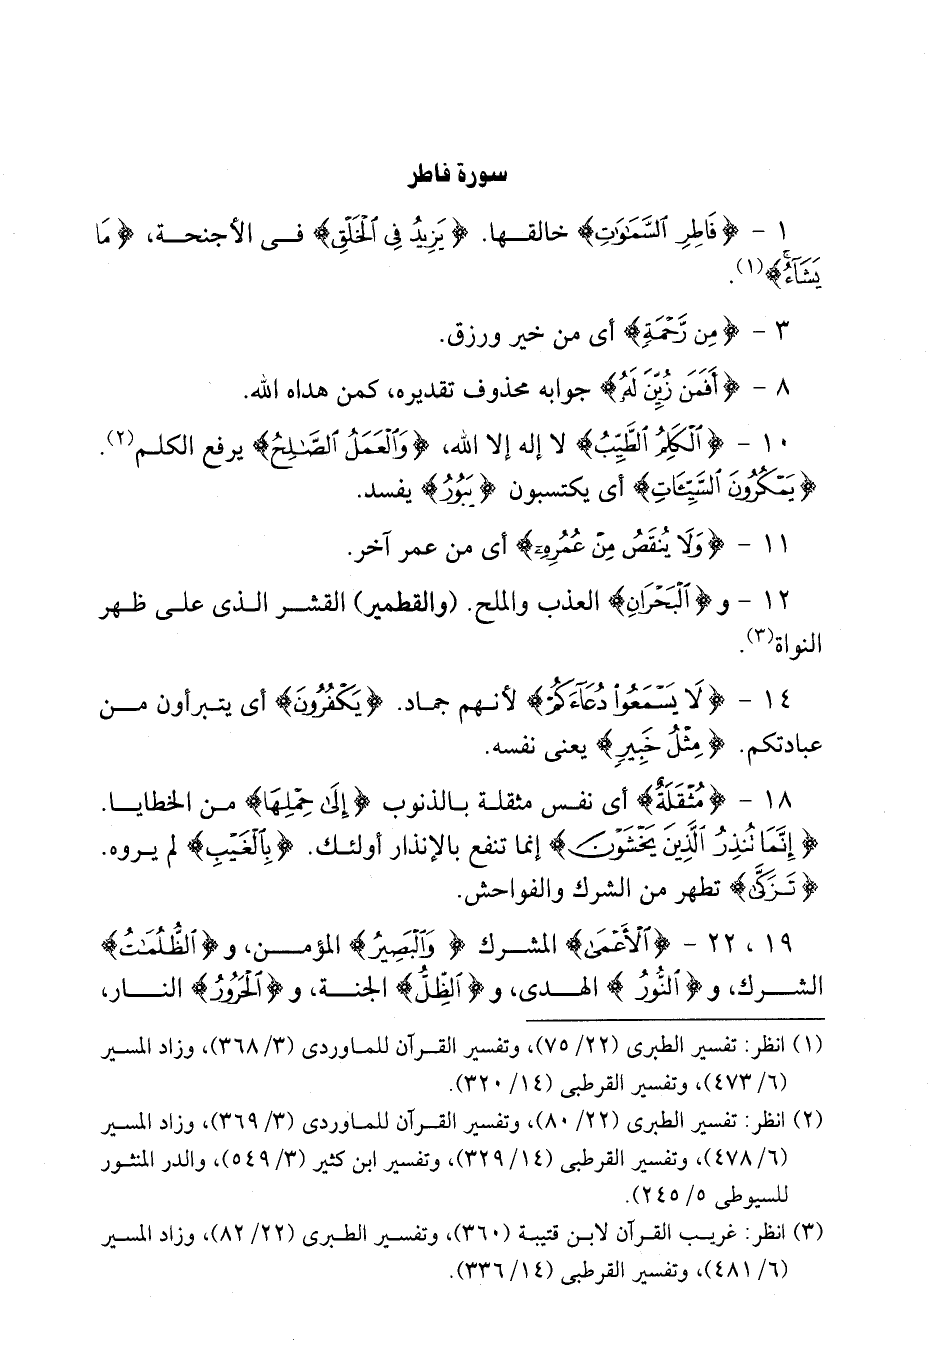 سورة فاطر
١ - ﴿فَاطِرِ السَّمَٰوَٰتِ﴾ خالقها. ﴿يَزِيدُ فِى الْخَلْقِ﴾ فى الأجنحة، ﴿مَا
يَشَآءُ﴾(١).
٣ - ﴿مِن رَّحْمَةٍ﴾ أى من خير ورزق.
٨ - ﴿أَفَمَن زُيِّنَ لَهُ﴾ جوابه محذوف تقديره، كمن هداه الله.
١٠ - ﴿الْكَلِمُ الطَّيِّبُ﴾ لا إله إلا الله، ﴿وَالْعَمَلُ الصَّٰلِحُ﴾ يرفع الكلم(٢).
﴿يَمْكُرُونَ السَّيِّئَاتِ﴾ أى يكتسبون ﴿يَبُورُ﴾ يفسد.
١١ - ﴿وَلَا يُنقَصُ مِنْ عُمُرِهِۦٓ﴾ أى من عمر آخر.
١٢ - و﴿الْبَحْرَانِ﴾ العذب والملح. (والقطمير) القشر الذى على ظهر
النواة(٣).
١٤ - ﴿لَا يَسْمَعُوا۟ دُعَآءَكُمْ﴾ لأنهم جماد. ﴿يَكْفُرُونَ﴾ أى يتبرأون من
عبادتكم. ﴿مِثْلُ خَبِيرٍ﴾ يعنى نفسه.
١٨ - ﴿مُثْقَلَةٌ﴾ أى نفس مثقلة بالذنوب ﴿إِلَىٰ حِمْلِهَا﴾ من الخطايا.
﴿إِنَّمَا تُنذِرُ الَّذِينَ يَخْشَوْنَ﴾ إنما تنفع بالإنذار أولئك. ﴿بِالْغَيْبِ﴾ لم يروه.
﴿تَزَكَّىٰ﴾ تطهر من الشرك والفواحش.
١٩ ، ٢٢ - ﴿الْأَعْمَىٰ﴾ المشرك ﴿وَالْبَصِيرُ﴾ المؤمن، و﴿الظُّلُمَٰتُ﴾
الشرك، و﴿النُّورُ﴾ الهدى، و﴿الظِّلُّ﴾ الجنة، و﴿الْحَرُورُ﴾ النار،
(١) انظر: تفسير الطبرى (٢٢/ ٧٥)، وتفسير القرآن للماوردى (٣/ ٣٦٨)، وزاد المسير
(٦/ ٤٧٣)، وتفسير القرطبى (١٤/ ٣٢٠).
(٢) انظر: تفسير الطبرى (٢٢/ ٨٠)، وتفسير القرآن للماوردى (٣/ ٣٦٩)، وزاد المسير
(٦/ ٤٧٨)، وتفسير القرطبى (١٤/ ٣٢٩)، وتفسير ابن كثير (٣/ ٥٤٩)، والدر المنثور
للسيوطى ٥/ ٢٤٥).
(٣) انظر: غريب القرآن لابن قتيبة (٣٦٠)، وتفسير الطبرى (٢٢/ ٨٢)، وزاد المسير
(٦/ ٤٨١)، وتفسير القرطبى (١٤/ ٣٣٦).